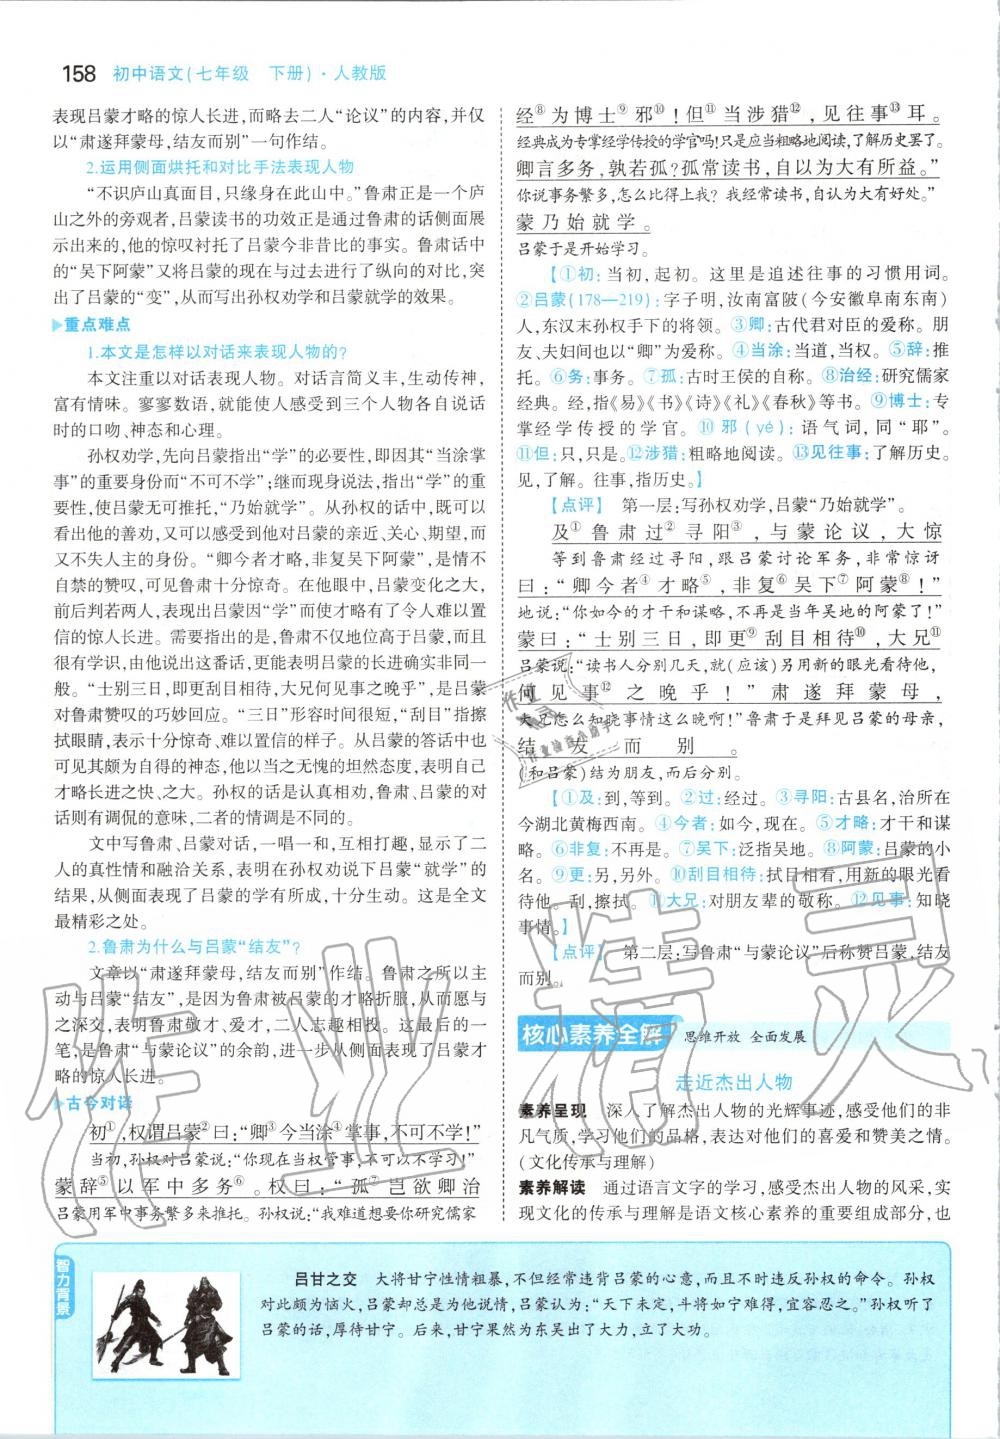 158 初中语文(七年级 下册)·人教版
表现吕蒙才略的惊人长进,而略去二人“论议”的内容,并仅
以“肃遂拜蒙母,结友而别”一句作结。
2.运用侧面烘托和对比手法表现人物
“不识庐山真面目,只缘身在此山中。”鲁肃正是一个庐
山之外的旁观者,吕蒙读书的功效正是通过鲁肃的话侧面展
示出来的,他的惊叹衬托了吕蒙今非昔比的事实。鲁肃话中
的“吴下阿蒙”又将吕蒙的现在与过去进行了纵向的对比,突
出了吕蒙的“变”,从而写出孙权劝学和吕蒙就学的效果。
▶重点难点
1.本文是怎样以对话来表现人物的?
本文注重以对话表现人物。对话言简义丰,生动传神,
富有情味。寥寥数语,就能使人感受到三个人物各自说话
时的口吻、神态和心理。
孙权劝学,先向吕蒙指出“学”的必要性,即因其“当涂掌
事”的重要身份而“不可不学”;继而现身说法,指出“学”的重
要性,使吕蒙无可推托,“乃始就学”。从孙权的话中,既可以
看出他的善劝,又可以感受到他对吕蒙的亲近、关心、期望,而
又不失人主的身份。“卿今者才略,非复吴下阿蒙”,是情不
自禁的赞叹,可见鲁肃十分惊奇。在他眼中,吕蒙变化之大,
前后判若两人,表现出吕蒙因“学”而使才略有了令人难以置
信的惊人长进。需要指出的是,鲁肃不仅地位高于吕蒙,而且
很有学识,由他说出这番话,更能表明吕蒙的长进确实非同一
般。“士别三日,即更刮目相待,大兄何见事之晚乎”,是吕蒙
对鲁肃赞叹的巧妙回应。“三日”形容时间很短,“刮目”指擦
拭眼睛,表示十分惊奇、难以置信的样子。从吕蒙的答话中也
可见其颇为自得的神态,他以当之无愧的坦然态度,表明自己
才略长进之快、之大。孙权的话是认真相劝,鲁肃、吕蒙的对
话则有调侃的意味,二者的情调是不同的。
文中写鲁肃、吕蒙对话,一唱一和,互相打趣,显示了二
人的真性情和融洽关系,表明在孙权劝说下吕蒙“就学”的
结果,从侧面表现了吕蒙的学有所成,十分生动。这是全文
最精彩之处。
2.鲁肃为什么与吕蒙“结友”?
文章以“肃遂拜蒙母,结友而别”作结。鲁肃之所以主
动与吕蒙“结友”,是因为鲁肃被吕蒙的才略折服,从而愿与
之深交,表明鲁肃敬才、爱才,二人志趣相投。这最后的一
笔,是鲁肃“与蒙论议”的余韵,进一步从侧面表现了吕蒙才
略的惊人长进。
▶古今对话
初①,权谓吕蒙②曰:“卿③今当涂④掌事,不可不学!”
当初,孙权对吕蒙说:“你现在当权管事,不可以不学习!”
蒙辞⑤以军中多务⑥。权曰:“孤⑦岂欲卿治
吕蒙用军中事务繁多来推托。孙权说:“我难道想要你研究儒家
经⑧为博士⑨邪⑩!但⑪当涉猎⑫,见往事⑬耳。
经典成为专掌经学传授的学官吗!只是应当粗略地阅读,了解历史罢了。
卿言多务,孰若孤?孤常读书,自以为大有所益。”
你说事务繁多,怎么比得上我?我经常读书,自认为大有好处。”
蒙乃始就学。
吕蒙于是开始学习。
【①初:当初,起初。这里是追述往事的习惯用词。
②吕蒙(178—219):字子明,汝南富陂(今安徽阜南东南)
人,东汉末孙权手下的将领。③卿:古代君对臣的爱称。朋
友、夫妇间也以“卿”为爱称。④当涂:当道,当权。⑤辞:推
托。⑥务:事务。⑦孤:古时王侯的自称。⑧治经:研究儒家
经典。经,指《易》《书》《诗》《礼》《春秋》等书。⑨博士:专
掌经学传授的学官。⑩邪(yé):语气词,同“耶”。
⑪但:只,只是。⑫涉猎:粗略地阅读。⑬见往事:了解历史。
见,了解。往事,指历史。】
【点评】 第一层:写孙权劝学,吕蒙“乃始就学”。
及①鲁肃过②寻阳③,与蒙论议,大惊
等到鲁肃经过寻阳,跟吕蒙讨论军务,非常惊讶
曰:“卿今者④才略⑤,非复⑥吴下⑦阿蒙⑧!”
地说:“你如今的才干和谋略,不再是当年吴地的阿蒙了!”
蒙曰:“士别三日,即更⑨刮目相待⑩,大兄⑪
吕蒙说:“读书人分别几天,就(应该)另用新的眼光看待他,
何见事⑫之晚乎!”肃遂拜蒙母,
大兄怎么知晓事情这么晚啊!”鲁肃于是拜见吕蒙的母亲,
结友而别。
(和吕蒙)结为朋友,而后分别。
【①及:到,等到。②过:经过。③寻阳:古县名,治所在
今湖北黄梅西南。④今者:如今,现在。⑤才略:才干和谋
略。⑥非复:不再是。⑦吴下:泛指吴地。⑧阿蒙:吕蒙的小
名。⑨更:另,另外。⑩刮目相待:拭目相看,用新的眼光看
待他。刮,擦拭。⑪大兄:对朋友辈的敬称。⑫见事:知晓
事情。】
【点评】 第二层:写鲁肃“与蒙论议”后称赞吕蒙,结友
而别。
核心素养全解 思维开放 全面发展
走近杰出人物
素养呈现 深入了解杰出人物的光辉事迹,感受他们的非
凡气质,学习他们的品格,表达对他们的喜爱和赞美之情。
(文化传承与理解)
素养解读 通过语言文字的学习,感受杰出人物的风采,实
现文化的传承与理解是语文核心素养的重要组成部分,也
智力背景
吕甘之交 大将甘宁性情粗暴,不但经常违背吕蒙的心意,而且不时违反孙权的命令。孙权
对此颇为恼火,吕蒙却总是为他说情,吕蒙认为:“天下未定,斗将如宁难得,宜容忍之。”孙权听了
吕蒙的话,厚待甘宁。后来,甘宁果然为东吴出了大力,立了大功。
作业精灵